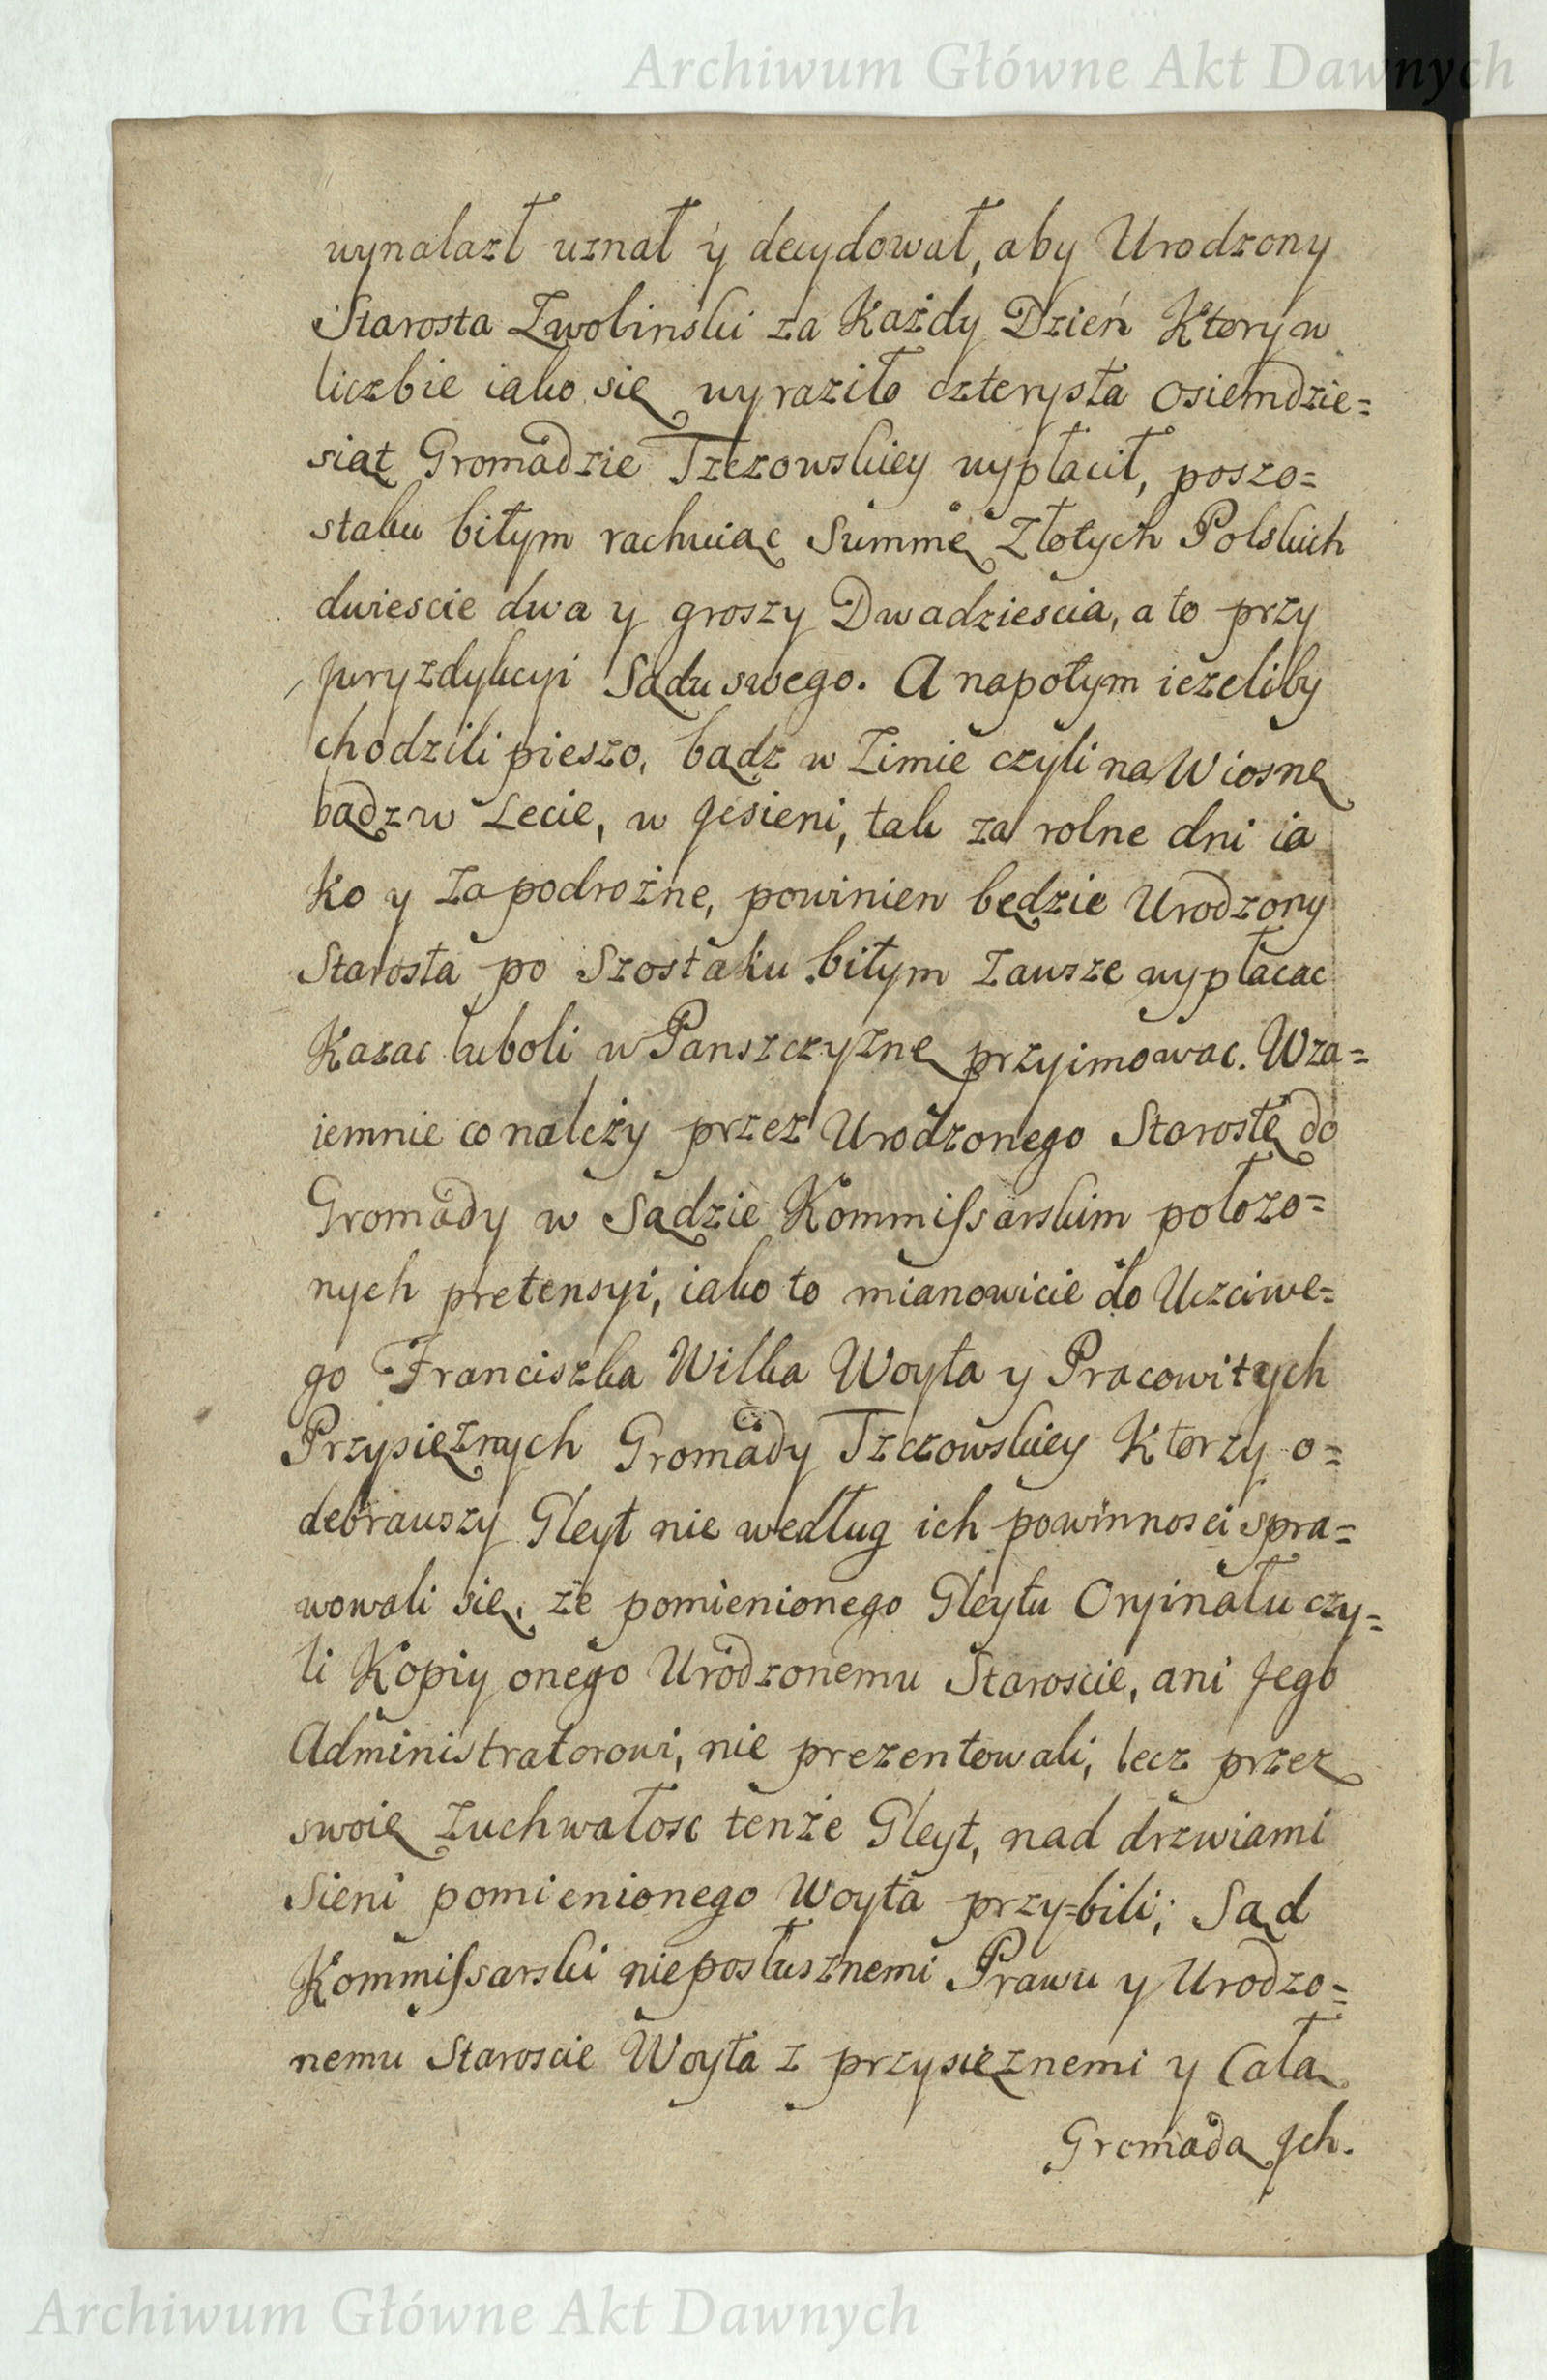 Archiwum Główne Akt Dawnych
wynalazł uznał y decydował, aby Urodzony
Starosta Zwolinski za Każdy Dzień Ktory w
liczbie iako się wyraziło czterysta osiemdzie=
siąt Gromadzie Tczczowskiey wypłacił, poszo=
staku bitym rachuiąc Summę Złotych Polskich
dwiescie dwa y groszy Dwadziescia, a to przy
Juryzdykcyi Sądu swego. A napotym ieżeliby
chodzili pieszo, bądz w Zimie czyli na Wiosnę
bądz w Lecie, w Jesieni, tak za rolne dni ia
ko y za podrożne, powinien będzie Urodzony
Starosta po Szostaku bitym zawsze wypłacac
Kazac luboli w Panszczyznę przyimowac. Wza=
iemnie co należy przez Urodzonego Starostę do
Gromady w Sądzie Kommissarskim położo=
nych pretensyi, iako to mianowicie do Uczciwe=
go Franciszka Wilka Woyta y Pracowitych
Przysiężnych Gromady Tczczowskiey Ktorzy o=
debrawszy Gleyt nie według ich powinnosci spra=
wowali się, że pomienionego Gleytu Oryinału czy=
li Kopiy onego Urodzonemu Staroscie, ani Jego
Administratorowi, nie prezentowali, lecz przez
swoię Zuchwałosc tenże Gleyt, nad drzwiami
Sieni pomienionego Woyta przy=bili; Sąd
Kommissarski nieposłusznemi Prawu y Urodzo=
nemu Staroscie Woyta z przysięznemi y Całą
Gromadą Jch.
Archiwum Główne Akt Dawnych